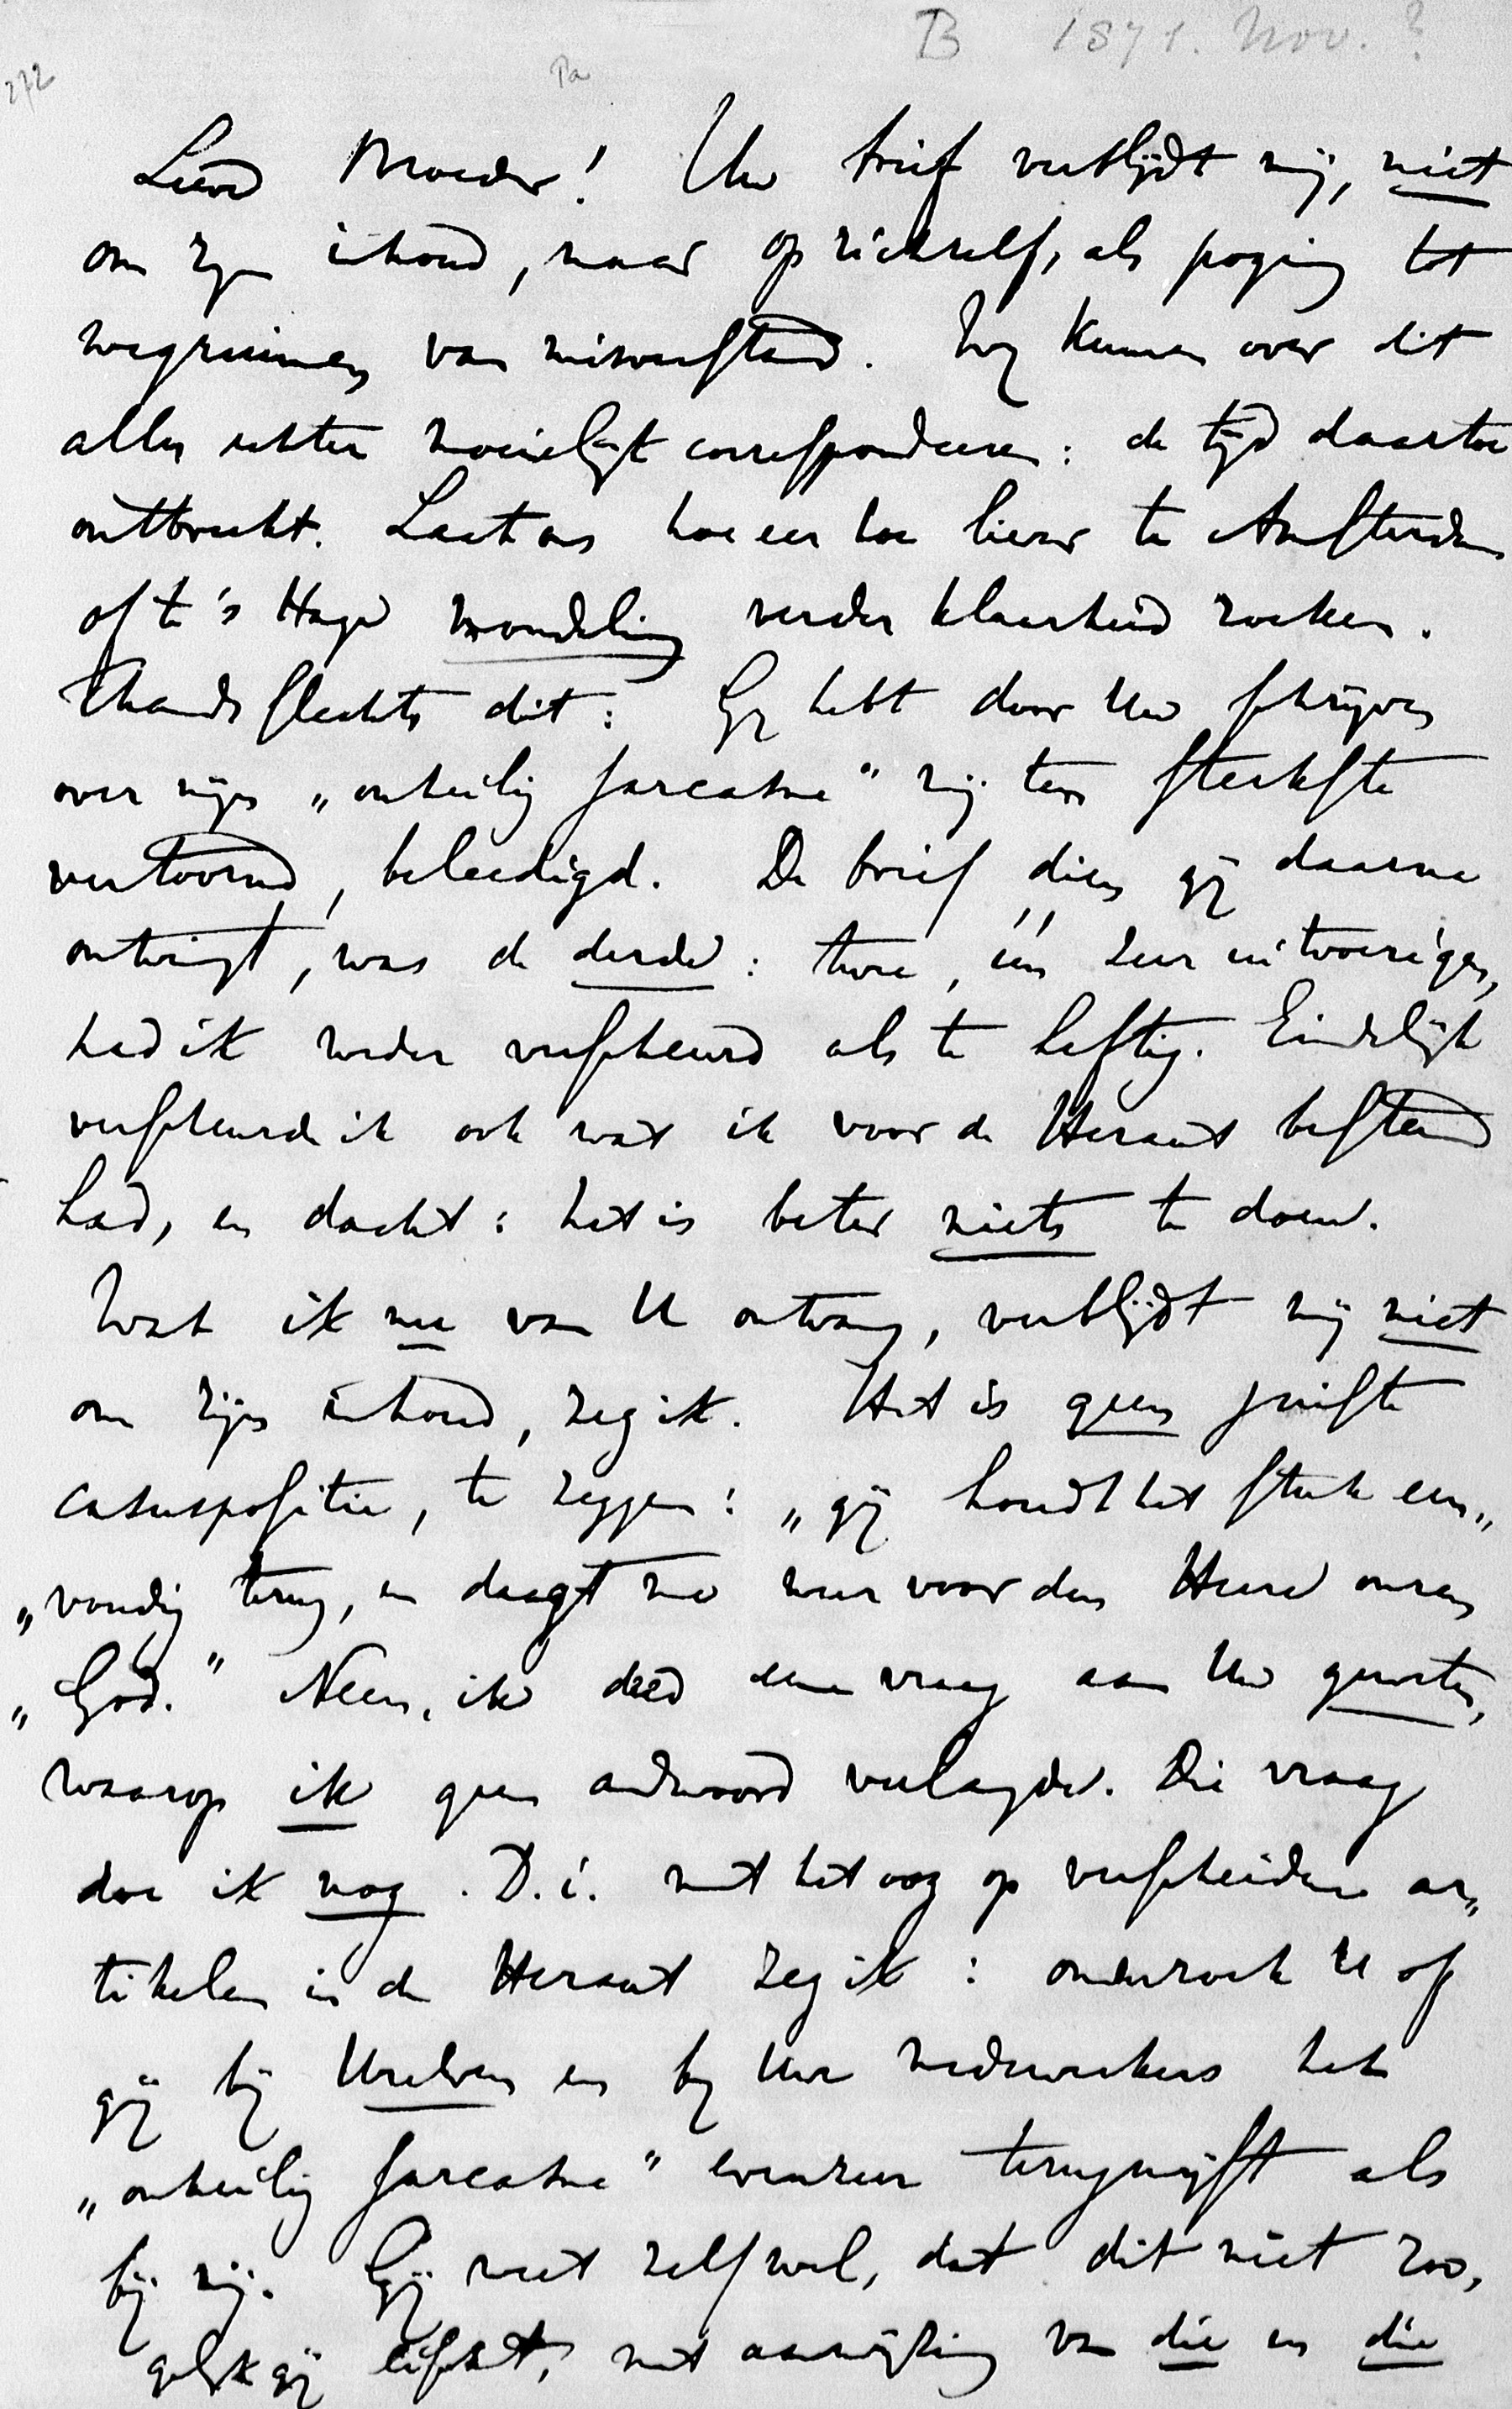 B 1871. Nov. ?
272
Pa
Lieve Broeder! Uw brief verblijdt mij, niet
om zijn inhoud, maar op zichzelf, als poging tot
wegruimen van misverstand. Wij kunnen over dit
alles echter moeielijk correspondeeren: de tijd daartoe
ontbreekt. Laat ons hoe eer hoe liever te Amsterdam
of te 's Hage mondeling verder klaarheid zoeken.
Thands slechts dit: Gij hebt door Uw schrijven
over mijn „onheilig sarcasme" mij ten sterkste
vertoornd, beleedigd. De brief dien gij daarna
ontvingt, was de derde: twee, één zeer uitvoerigen,
had ik weder verscheurd als te heftig. Eindelijk
verscheurde ik ook wat ik voor de Heraut bestemd
had, en dacht: het is beter niets te doen.
Wat ik nu van U ontvang, verblijdt mij niet
om zijn inhoud, zeg ik. Het is geen juiste
casuspositie, te zeggen: „gij houdt het stuk een„
„voudig terug, en daagt me neer voor den Heere onzen
„God." Neen, ik deed eene vraag aan Uw geweten,
waarop ik geen antwoord verlangde. Die vraag
doe ik nog. D.i. met het oog op verscheidene ar„
tikelen in de Heraut zeg ik: onderzoek U of
gij bij Uzelven en bij Uwe medewerkers het
„onheilig sarcasme" evenzeer terugwijst als
bij mij. Gij weet zelf wel, dat dit niet zoo,
gelijk gij eischt, met aanwijzing van die en die